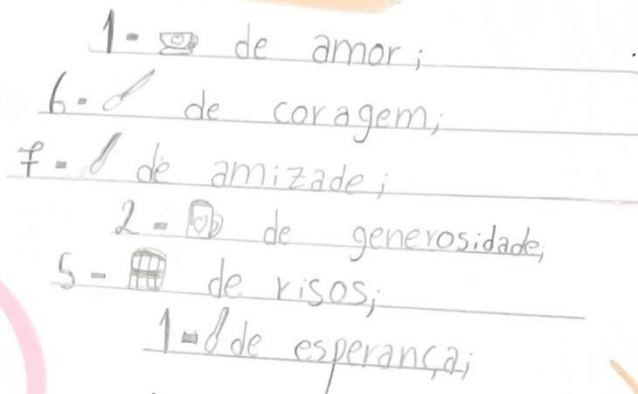 1- de amor;
6- de coragem;
7- de amizade;
2- de generosidade;
5- de risos;
1- de esperança;